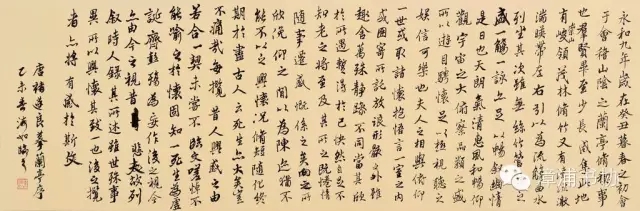 永和九年歲在癸丑暮春之初會
于會稽山陰之蘭亭脩禊事
也群賢畢至少長咸集此地
有崇山峻領茂林脩竹又有清流激
湍暎帶左右引以為流觴曲水
列坐其次雖無絲竹管弦之
盛一觴一詠亦足以暢敘幽情
是日也天朗氣清惠風和暢仰
觀宇宙之大俯察品類之盛
所以遊目騁懷足以極視聽之
娛信可樂也夫人之相與俯仰
一世或取諸懷抱悟言一室之內
或因寄所託放浪形骸之外雖
趣舍萬殊靜躁不同當其欣
於所遇暫得於己快然自足不
知老之將至及其所之既惓情
隨事遷感慨係之矣向之所
欣俛仰之間以為陳迹猶不
能不以之興懷況脩短隨化終
期於盡古人云死生亦大矣豈
不痛哉每攬昔人興感之由
若合一契未嘗不臨文嗟悼不
能喻之於懷固知一死生為虛
誕齊彭殤為妄作後之視今
亦由今之視昔悲夫故列
敘時人錄其所述雖世殊事
異所以興懷其致一也後之攬
者亦將有感於斯文
唐褚遂良摹蘭亭序
乙未春